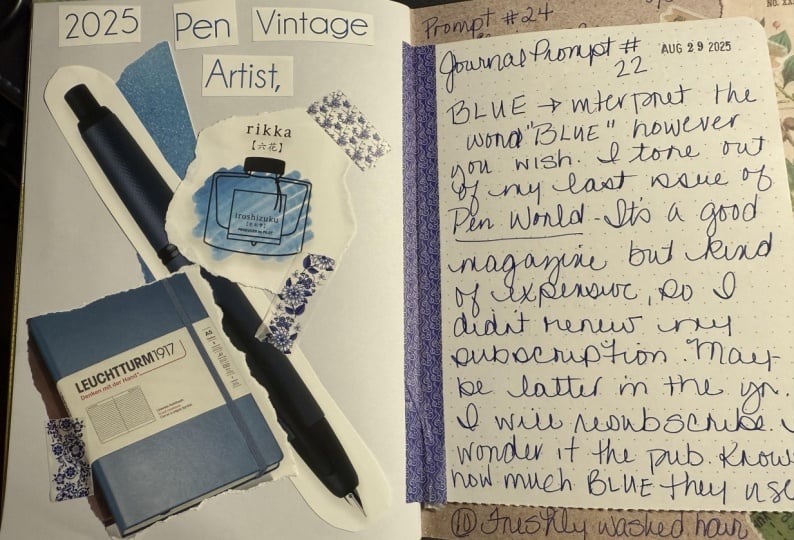 2025 Pen Vintage
Artist,
rikka
【六花】
iroshizuku
LEUCHTTURM1917
Denken mit der Hand
A5
Prompt #24
Journal Prompt #
22
AUG 29 2025
BLUE → interpret the
word "BLUE" however
you wish. I tore out
of my last issue of
Pen World. It's a good
magazine but kind
of expensive, so I
didn't renew my
subscription. May-
be latter in the yr.
I will resubscribe. I
wonder if the pub. Knows
how much BLUE they use
⑩ Freshly washed hair
NO.